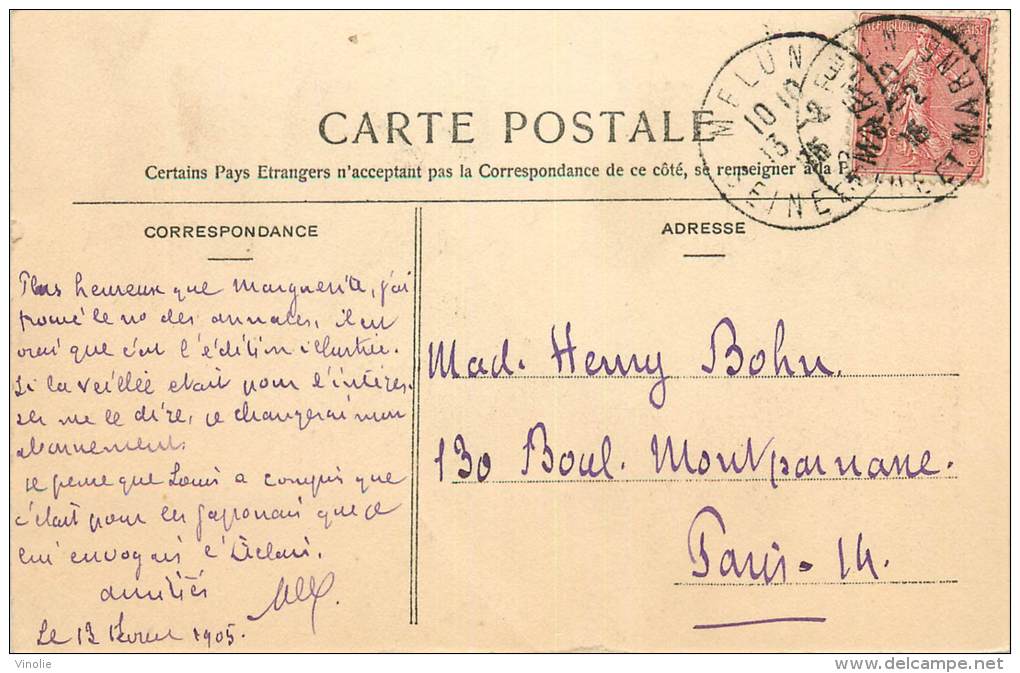 REPUBLIQUE FRANÇAISE
MELUN
10 10
13 2
SEINE ET MARNE
CARTE POSTALE
Certains Pays Etrangers n'acceptant pas la Correspondance de ce côté, se renseigner à la P
CORRESPONDANCE
Plus heureux que Marguerite, j'ai
trouvé le no des annales, il est
vrai que c'est l'édition illustrée.
Si la veillée etait pour l'intéres-
ser me le dire, je changerai mon
abonnement.
je pense que Louis a compris que
c'était pour les Japonais que je
lui envoyais l'
amitiés
Le 13 février 1905.
ADRESSE
Mad. Henry Bohn.
130 Boul. Montparnasse.
Paris - 14.
Vinolie
delcampe.net